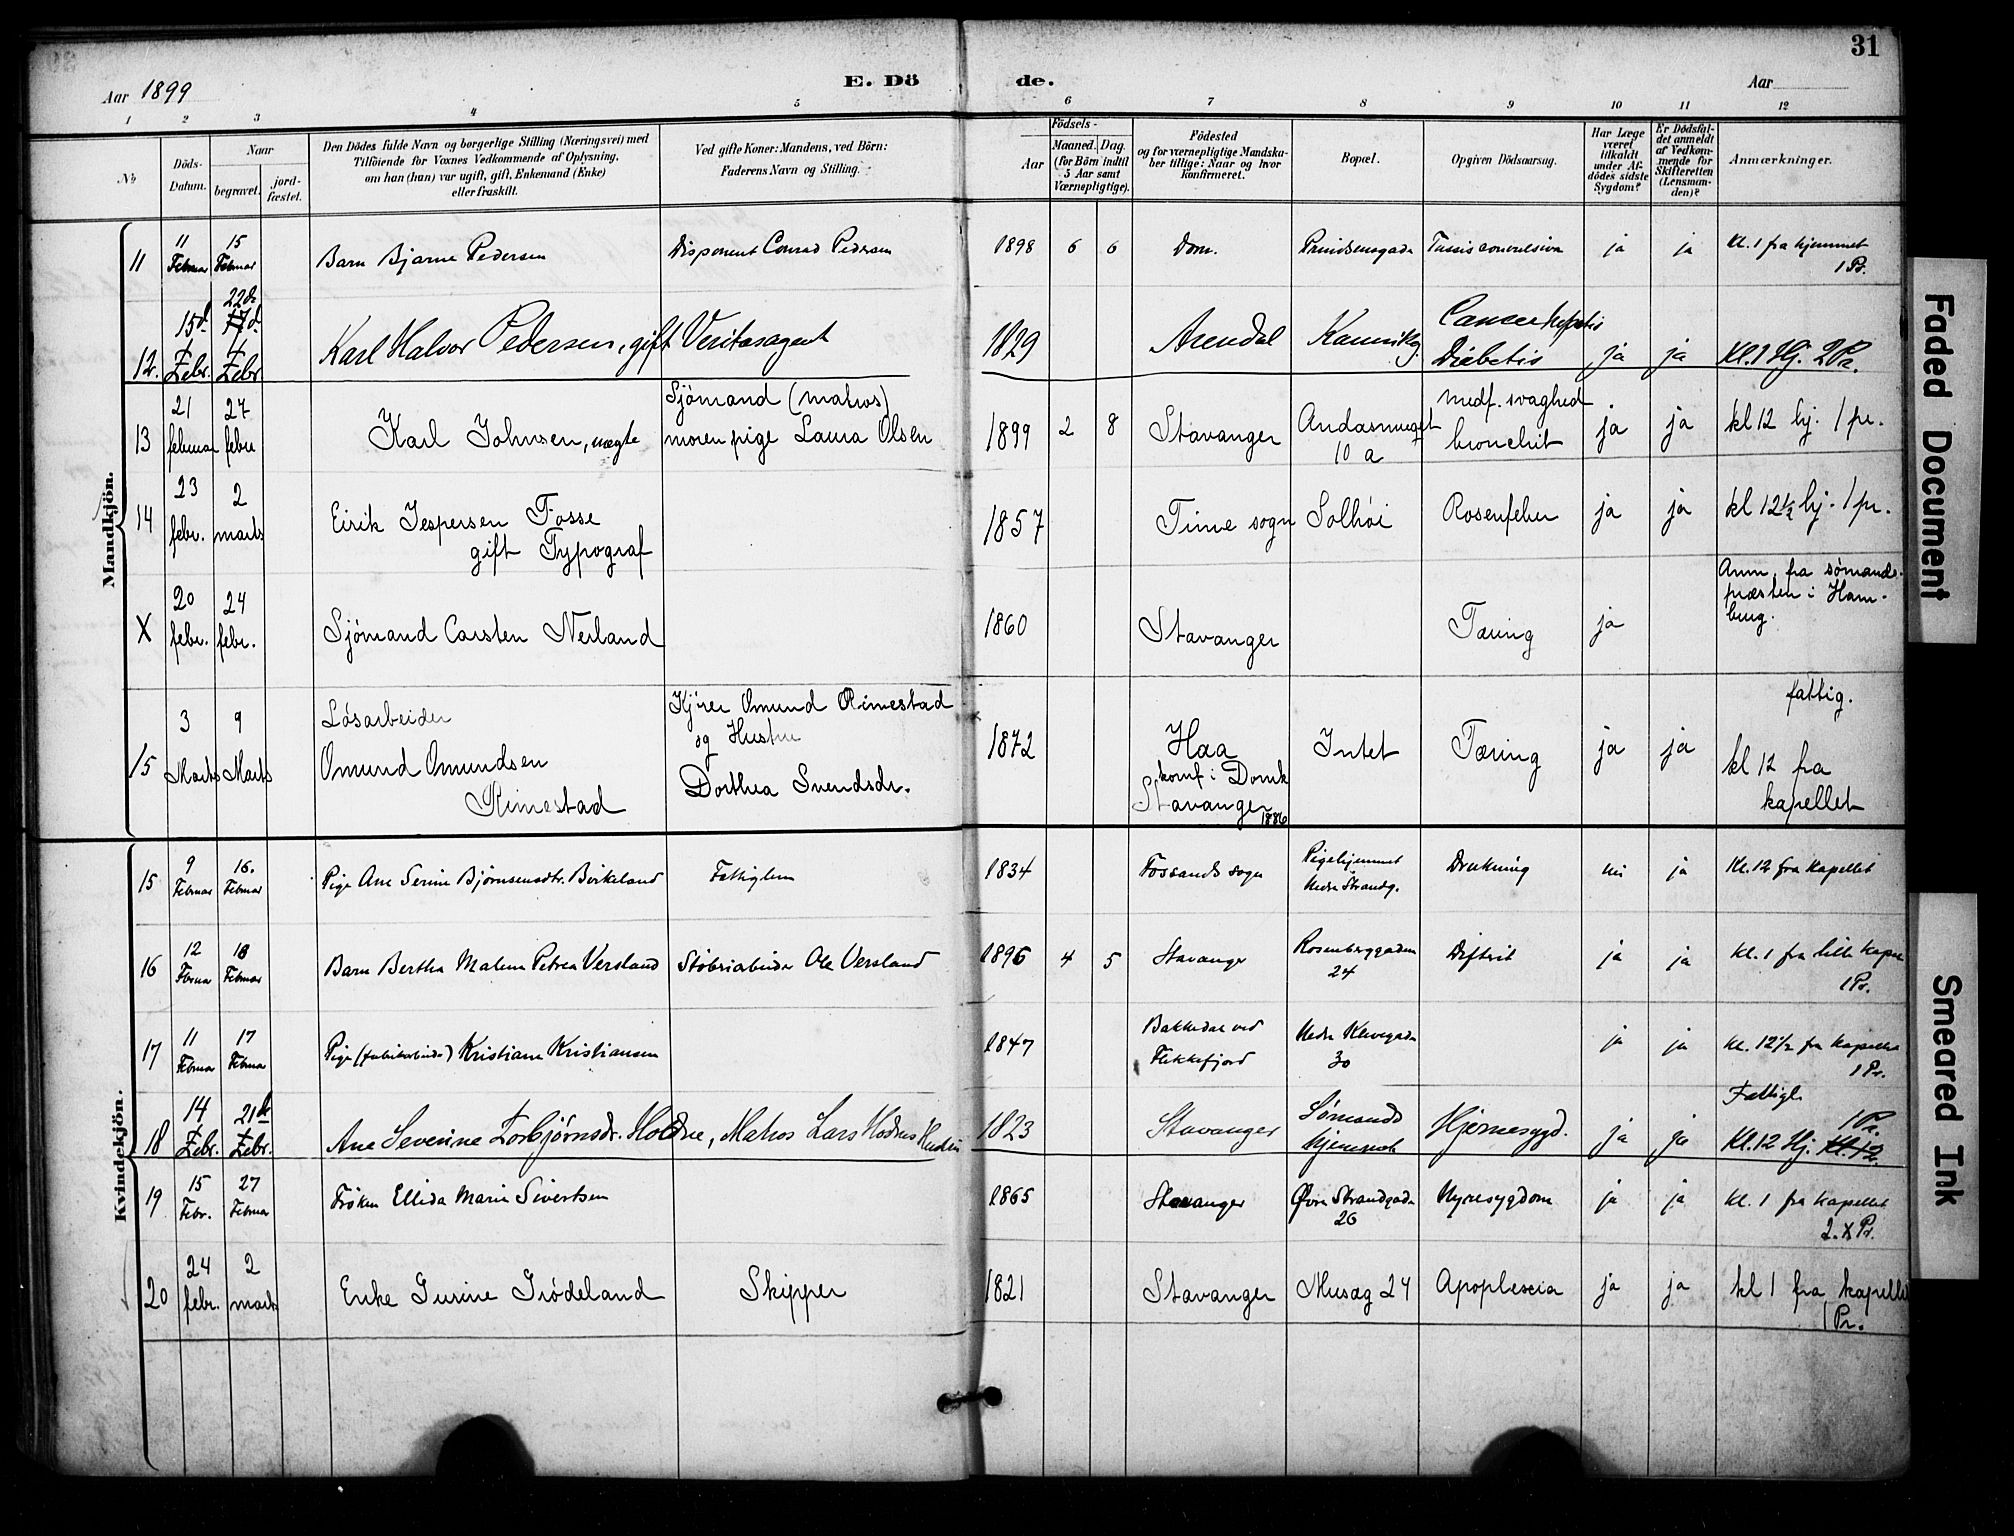 31
Aar 1899
E. Dö
de.
Aar
1 2 3 4 5 6 7 8 9 10 11 12
№
Döds-Datum.
Naar
begravet.
jord-fæstet.
Den Dödes fulde Navn og borgerlige Stilling (Næringsvei) med
Tilföiende for Voxnes Vedkommende af Oplysning,
om han (hun) var ugift, gift, Enkemand (Enke)
eller fraskilt.
Ved gifte Koner: Mandens, ved Börn:
Faderens Navn og Stilling.
Födsels-
Aar
Maaned. Dag.
(for Börn indtil
5 Aar samt
Værnepligtige).
Födested
og for værnepligtige Mandska-
ber tillige: Naar og hvor
konfirmeret.
Bopæl.
Opgiven Dödsaarsag.
Har Læge
været
tilkaldt
under Af-
dödes sidste
Sygdom?
Er Dödsfal-
det anmeldt
af Vedkom-
mende for
Skifteretten
(Lensman-
den)?
Anmærkninger.
Mandkjön.
11 11 Februar 15 Februar Barn Bjarne Pedersen Disponent Conrad Pedersen 1898 6 6 Dom. Prindsensgade Tussis convulsiva ja ja Kl. 1 fra hjemmet
1 Pr.
12. 15d Febr. 17d. 22de Febr Karl Halvor Pedersen, gift Veritasagent 1829 Arendal Kannikg. Cancer hepatis
Diabetis ja ja Kl. 1 Hj. 2 Pr.
13 21 februar 27 febr Karl Johnsen, uægte Sjömand (matros)
moren pige Laura Olsen 1899 2 8 Stavanger Andasmuget
10 a medf. svaghed
bronchit ja ja kl 12 hj. 1 pr.
14 23 febr. 2 marts Eirik Jespersen Fosse
gift Typograf 1857 Time sogn Solhöi Rosenfeber ja ja kl 12½ hj. 1 pr.
X 20 febr. 24 febr. Sjömand Carsten Nerland 1860 Stavanger Tæring ja Anm. fra sömands-
præsten i Ham-
burg.
15 3 Marts 9 Marts Lösarbeider
Omund Omundsen
Rimestad Kjörer Omund Rimestad
og Hustru
Dorthea Svendsdr. 1872 Haa
konf. i Domk
Stavanger
1886 Intet Tæring ja ja fattig.
kl 12 fra
kapellet
Kvindekjön.
15 9 Februar 16. Februar Pige Ane Serine Bjørnsensdtr. Birkeland Fattiglem 1834 Fossands sogn Pigehjemmet
Nedre Strandg. Drukning nei ja Kl. 12 fra kapellet
16 12 Februar 18 Februar Barn Bertha Malene Petrea Versland Støberiarbeider Ole Versland 1896 4 5 Stavanger Rosenberggaden
24 Difterit ja ja Kl. 1 fra lille kapel
1 Pr.
17 11 Februar 17 Februar Pige (fabrikarbeider) Kristiane Kristiansen 1847 Bakkedal ved
Flekkefjord Nedre Klevegade
30 ja ja Kl. 12½ fra kapellet
1 Pr.
18 14 Febr. 21de Febr. Ane Severine Torbjørnsdr. Hodne, Matros Lars Hodnes Hustru 1823 Stavanger Sømands
hjemmet Hjernesygd. ja ja Fattigl.
1 Pr.
Kl. 12 Hj. Kl. 12.
19 15 Febr. 27 Februar Frøken Ellida Marie Sivertsen 1865 Stavanger Øvre Strandgade
26 Nyresygdom ja ja Kl. 1 fra kapellet
2. X Pr.
20 24 febr. 2 marts Enke Gurine Trödeland Skipper 1821 Stavanger Musæg 24 Apoplexia ja ja kl 1 fra kapellet
1 Pr.
Faded Document
Smeared Ink